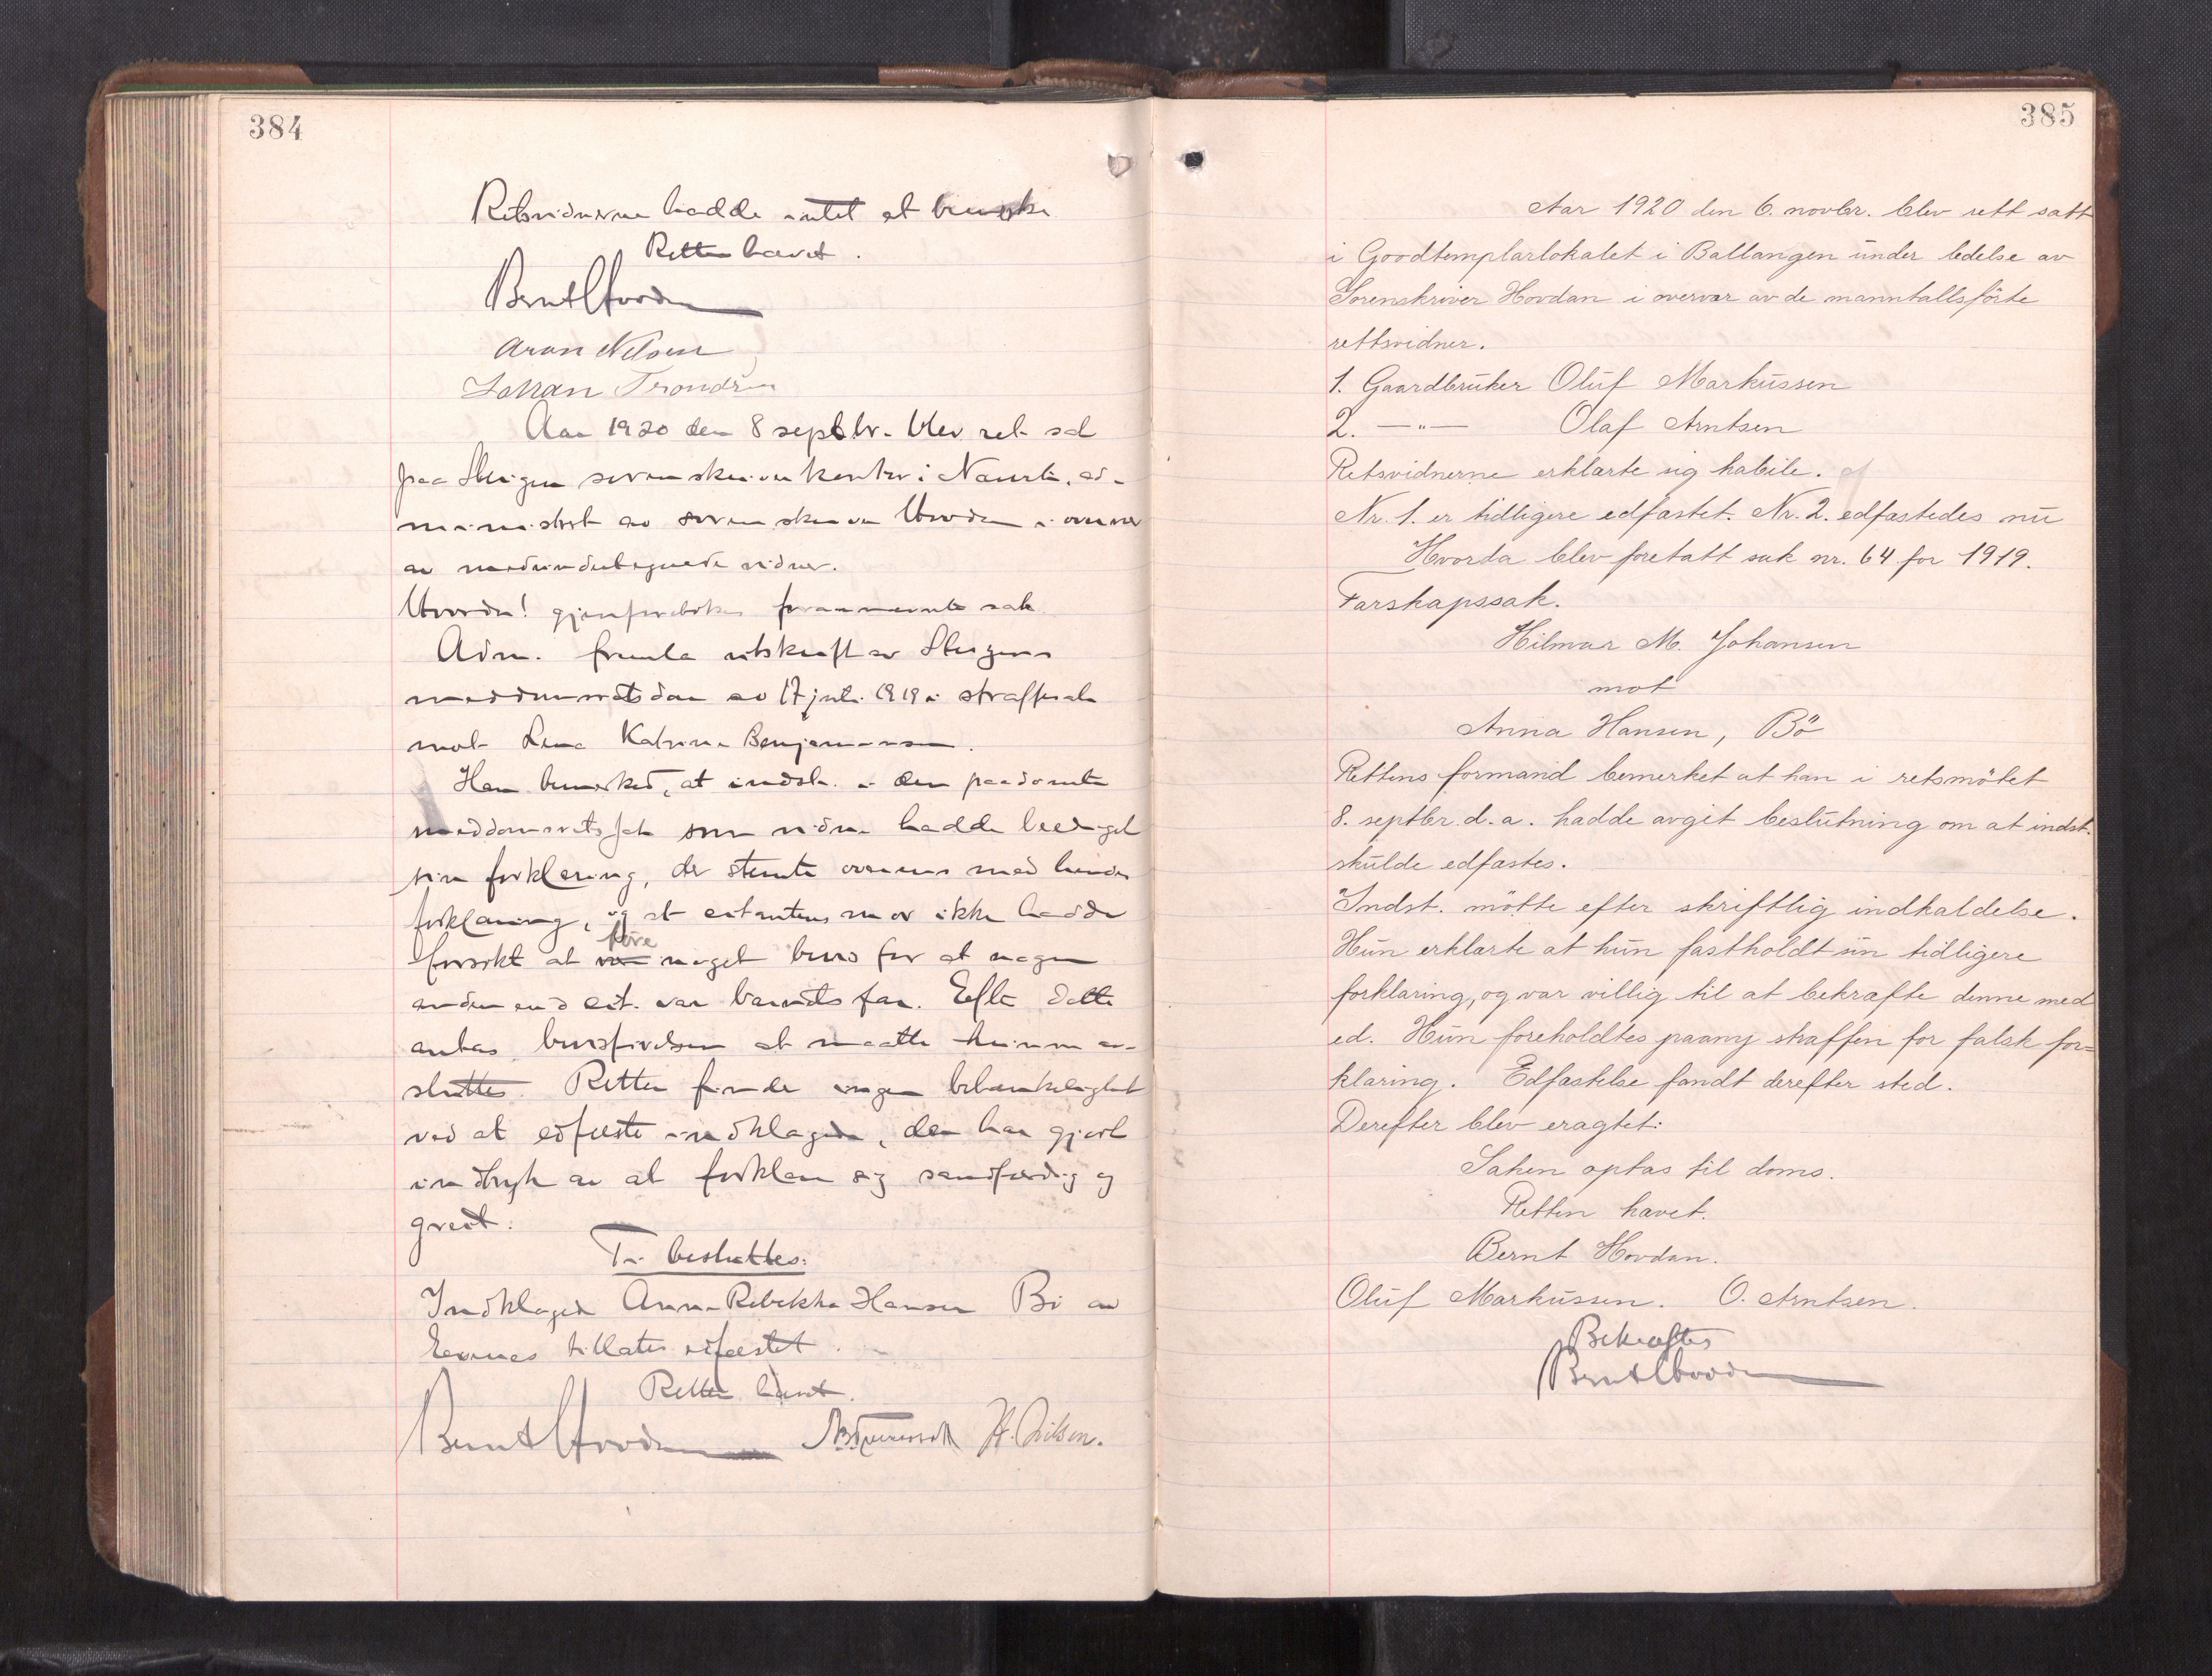 384
Retsvidnerne hadde intet at bemerke
Retten hævet.
Bernt Hovdan
Aron Nilsen
Johan Trondsen
Aar 1920 den 8 septbr. blev ret sat
paa Steigen sorenskriverkontor i Navvik, ad-
ministrert av sorenskriver Hovdan i overvær
av medundertegnede vidner.
Hvorda! gjenforetokes forannevnte sak
Adm. fremla utskrift av Steigens
meddomsretsdom av 17 juli 1919 i straffesak
mot Lena Katrine Benjaminsen.
Han bemerket, at indst. i den paadømte
meddomsretssak som vidne hadde beediget
sin forklaring, der stemte overens med hendes
forklaring, og at citantens mor ikke hadde
forsøkt at føre noget bevis for at nogen
anden end cit. var barnets far. Efter dette
antas bevisførelsen at maatte kunne av-
sluttes. Retten finder ingen betænkelighet
ved at edfæste indklagede, der har gjort
indtryk av at forklare sig sandfærdig og
greit.
Ti besluttes:
Indklagede Anna Rebekka Hansen Bø av
Evenes tillates edfæstet.
Retten hævet.
Bernt Hovdan H. Nilsen.
385
Aar 1920 den 6. novbr. blev rett satt
i Goodtemplarlokalet i Ballangen under ledelse av
Sorenskriver Hovdan i overvær av de manntallsförte
rettsvidner.
1. Gaardbruker Oluf Markussen
2. —"— Olaf Arntsen
Retsvidnerne erklærte sig habile.
Nr. 1. er tidligere edfæstet. Nr. 2. edfæstedes nu
Hvorda blev foretatt sak nr. 64 for 1919.
Farskapssak.
Hilmar M. Johansen
mot
Anna Hansen, Bö
Rettens formand bemerket at han i retsmötet
8. septbr. d.a. hadde avgit beslutning om at indst.
skulde edfæstes.
Indst. mötte efter skriftlig indkaldelse.
Hun erklærte at hun fastholdt sin tidligere
forklaring, og var villig til at bekræfte denne med
ed. Hun foreholdtes paany straffen for falsk for=
klaring. Edfæstelse fandt derefter sted.
Derefter blev eragtet:
Saken optas til doms.
Retten hævet.
Bernt Hovdan.
Oluf Markussen. O. Arntsen.
Bekræftes
Bernt Hovdan